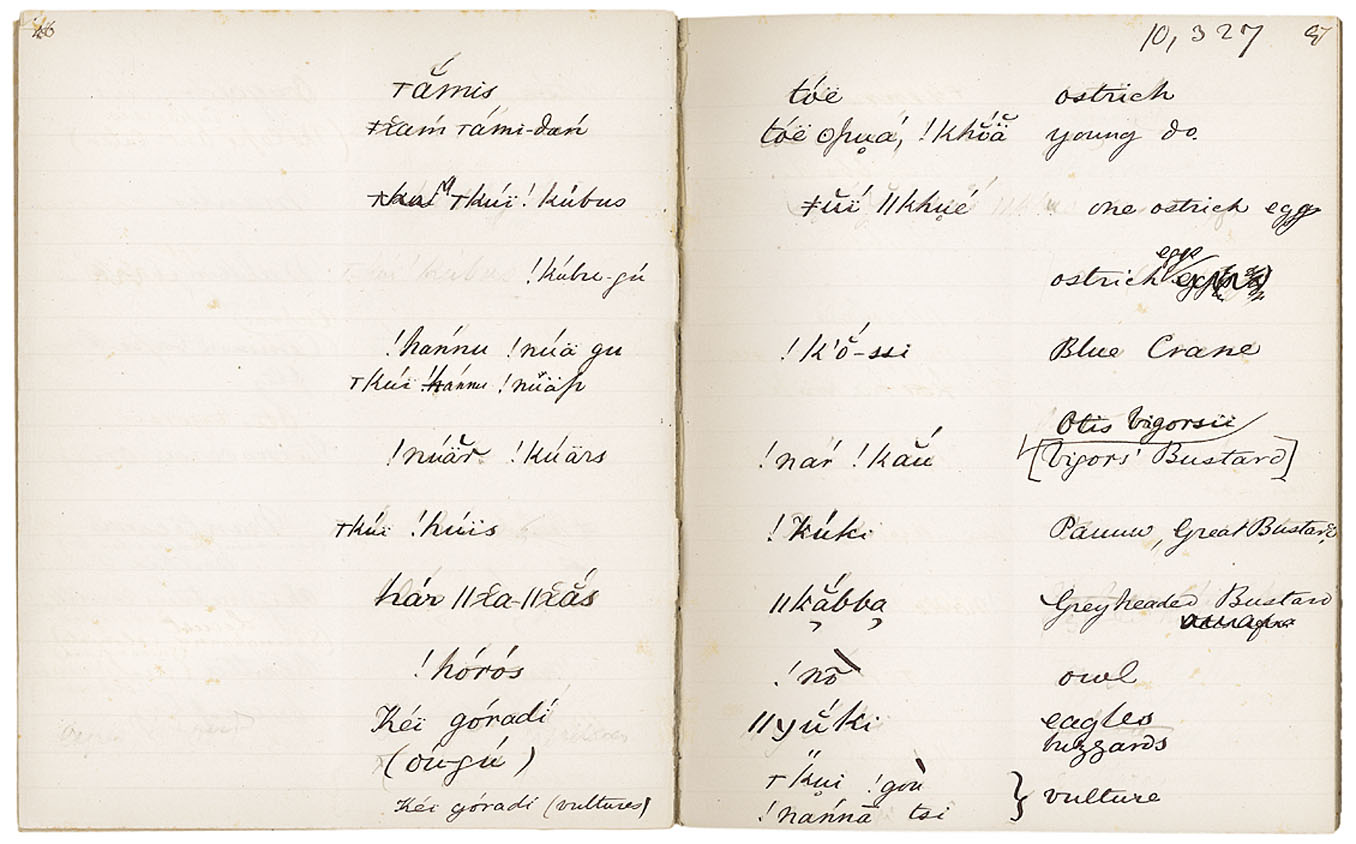 Ꞇắmis
Ꞇámi-dań
Ꞇkúï !kúbus
!kúbu-gú
!hańnu !núä gu
Ꞇkúi !hánnu !nŭäp
!núär̆ !kúärs
Ꞇkúi !húïs
hár ǁ
!hórós
Kéï góradí
(óu-gú)
Kéi góradí (vultures)
10,327
tóë ostrich
tóë !khŏ́ä̆ young do.
ǂŭí ǁkhu̥é one ostrich egg
ostrich eggs
!k'ŏ́-ssi Blue Crane
Otis Vigorsii
!nar̕ !kăú [Vigors' Bustard]
!kúki Pauuw, Great Bustard
ǁkắbba̦ Greyheaded Bustard
!nṑ owl
ǁyŭ́ki eagles
buzzards
Ꞇk̈u̥i !goù
!nańnā tsi } vulture